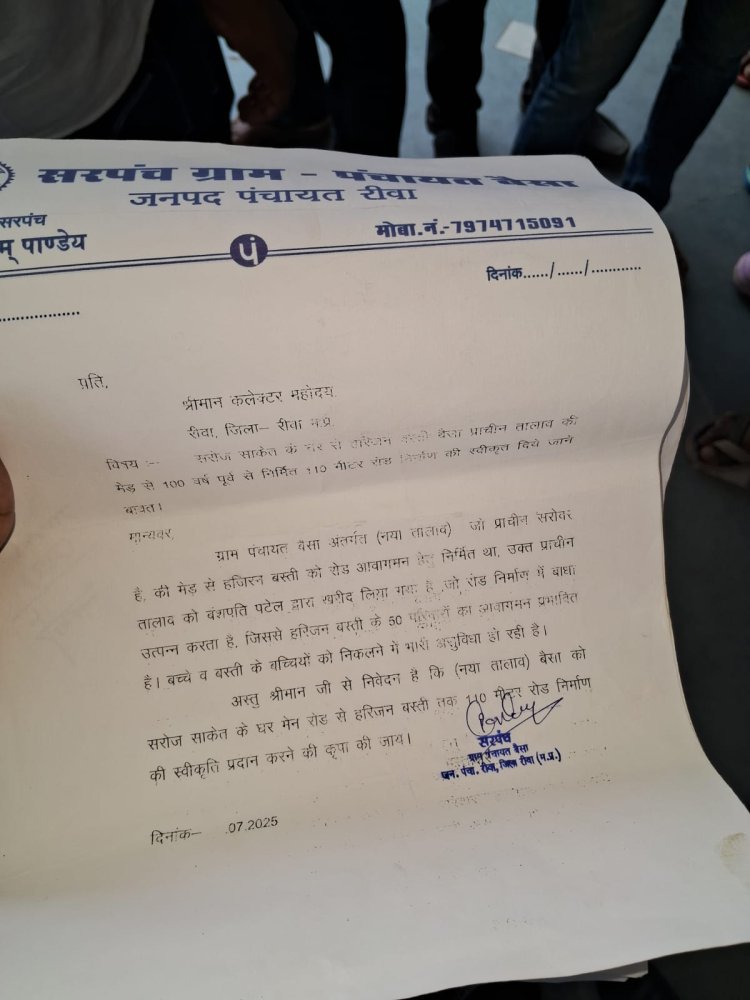 सरपंच ग्राम - पंचायत बैसा
जनपद पंचायत रीवा
सरपंच
म् पाण्डेय
मोबा.नं.-7974715091
पं
दिनांक....../....../............
प्रति,
श्रीमान कलेक्टर महोदय,
रीवा, जिला– रीवा म.प्र.
विषय :– सरोज साकेत के घर से हरिजन बस्ती बैसा प्राचीन तालाव की
मेड़ से 100 वर्ष पूर्व से निर्मित 110 मीटर रोड निर्माण की स्वीकृत दिये जाने
बावत।
मान्यवर,
ग्राम पंचायत बैसा अंतर्गत (नया तालाव) जो प्राचीन सरोवर
है, की मेड़ से हजिरन बस्ती को रोड आवागमन हेतु निर्मित था, उक्त प्राचीन
तालाव को बंशपति पटेल द्वारा खरीद लिया गया है, जो रोड निर्माण में बाधा
उत्पन्न करता है, जिससे हरिजन बस्ती के 50 परिवारों का आवागमन प्रभावित
है। बच्चे व बस्ती के बच्चियों को निकलने में भारी असुविधा हो रही है।
अस्तु श्रीमान जी से निवेदन है कि (नया तालाव) बैसा को
सरोज साकेत के घर मेन रोड से हरिजन बस्ती तक 110 मीटर रोड निर्माण
की स्वीकृति प्रदान करने की कृपा की जाय।
सरपंच
ग्राम पंचायत बैसा
जन. पंचा. रीवा, जिला रीवा (म.प्र.)
दिनांक– .07.2025